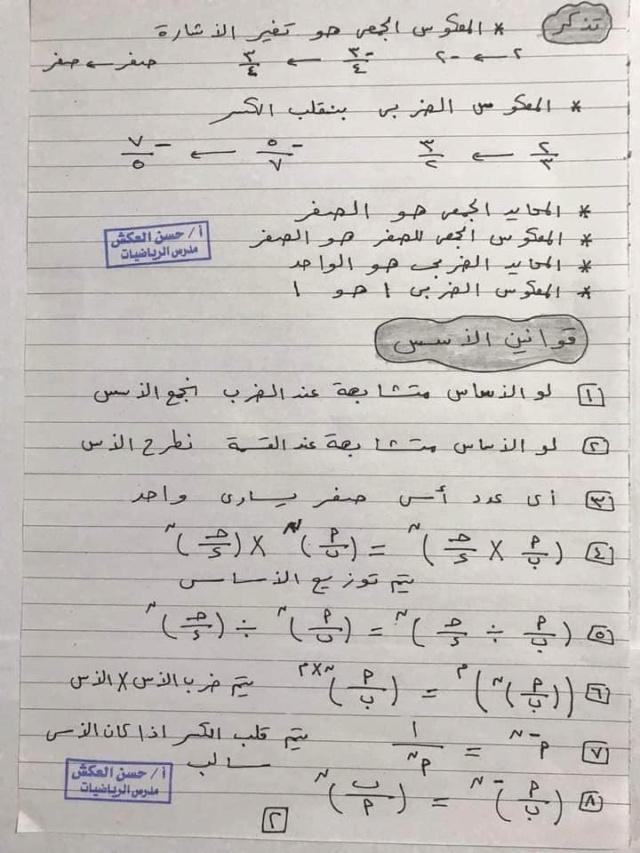 تذكر
* المعكوس الجمعى هو تغير الأشارة
٢ ← -٢    -٣/٤ ← ٣/٤    صفر ← صفر
* المعكوس الضربى بنقلب الكسر
٢/٣ ← ٣/٢    -٥/٧ ← -٧/٥
* المحايد الجمعى هو الصفر
* المعكوس الجمعى للصفر هو الصفر
* المحايد الضربى هو الواحد
* المعكوس الضربى ١ هو ١
أ/ حسن العكش
مدرس الرياضيات
قوانين الأسس
١ لو الأساس متشابهة عند الضرب نجمع الأسس
٢ لو الأساس متشابهة عند القسمة نطرح الأس
٣ أى عدد أس صفر يساوى واحد
٤ (أ/ب × حـ/د)^ن = (أ/ب)^ن × (حـ/د)^ن
يتم توزيع الأساس
٥ (أ/ب ÷ حـ/د)^ن = (أ/ب)^ن ÷ (حـ/د)^ن
٦ ((أ/ب)^ن)^م = (أ/ب)^ن×م يتم ضرب الأس × الأس
٧ أ^-ن = ١/أ^ن يتم قلب الكسر اذا كان الأس
سالب
٨ (أ/ب)^-ن = (ب/أ)^ن
أ/ حسن العكش
مدرس الرياضيات
٢